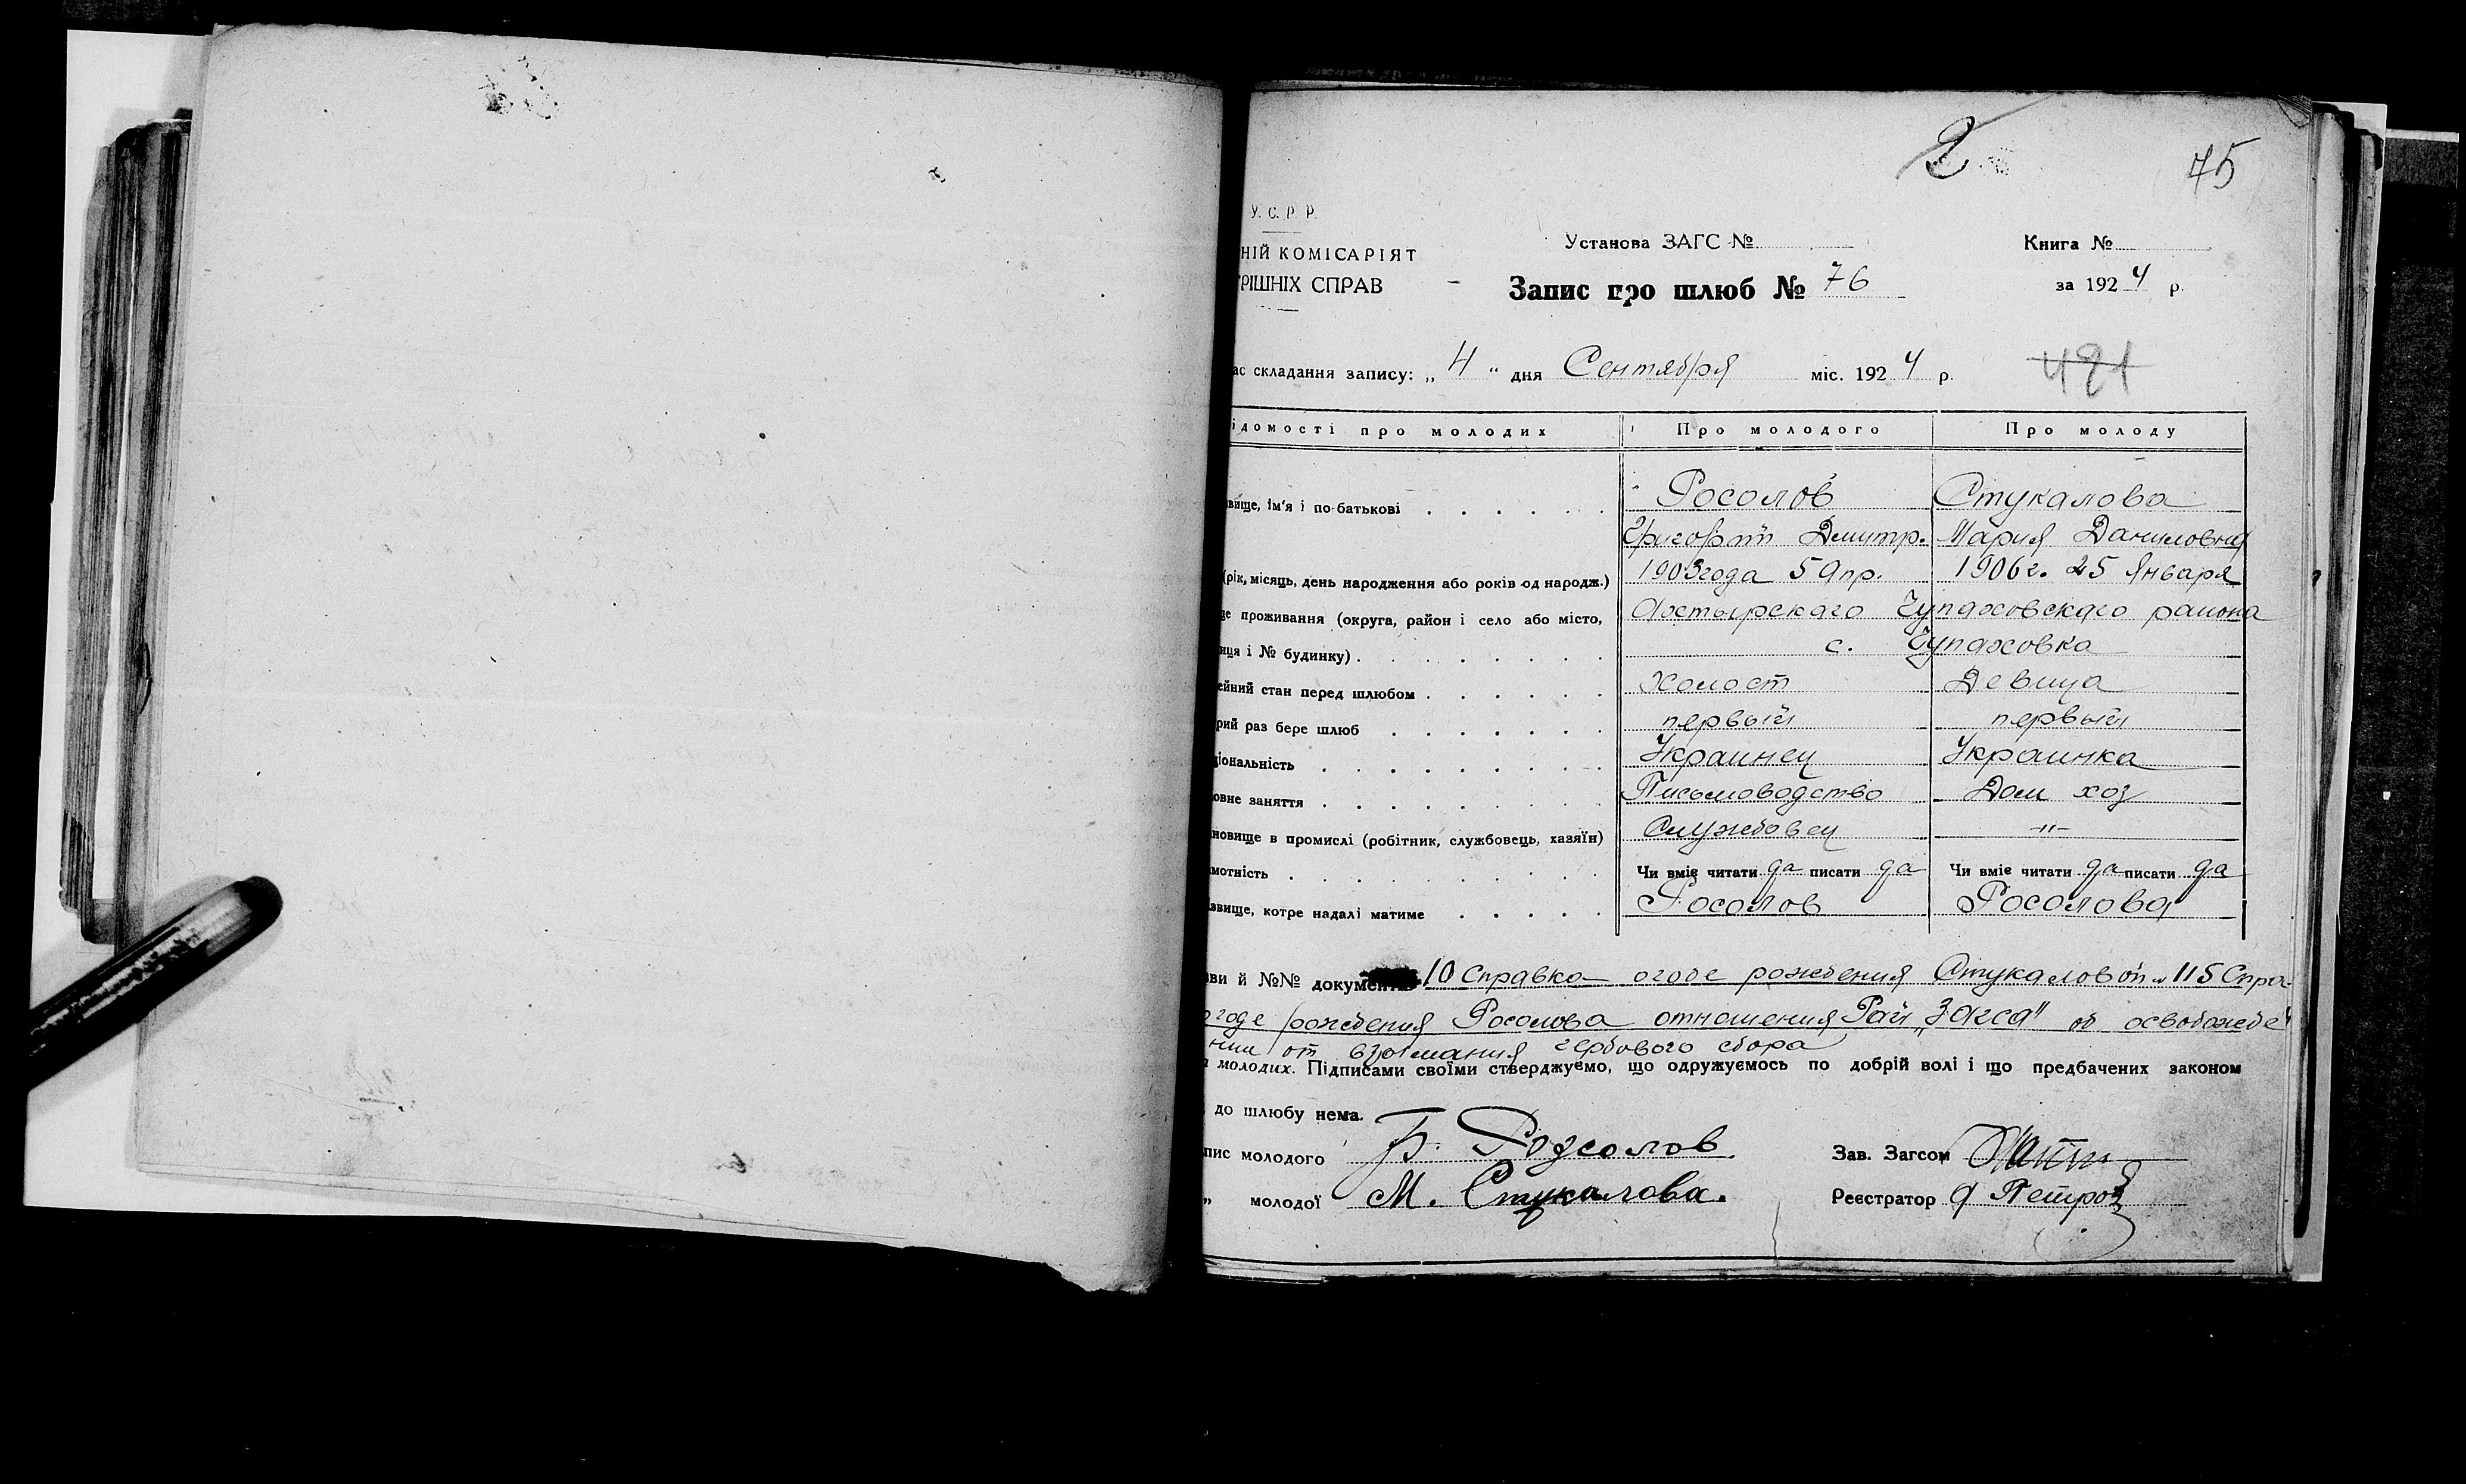 2
75
У. С. Р. Р.
НІЙ КОМІСАРІЯТ
РІШНІХ СПРАВ
Установа ЗАГС №
Книга №
Запис про шлюб № 76
за 1924 р.
ас складання запису: „ 4 “ дня Сентября міс. 1924 р.
421
ідомості про молодих Про молодого Про молоду
вище, ім'я і по-батькові Росолов Стукалова
Григорій Дмитр. Мария Даниловна
(рік, місяць, день народження або років од народж.) 1903 года 5 Апр. 1906 г. 25 Января
це проживання (округа, район і село або місто, Ахтырскаго Чупаховскаго района
иця і № будинку) с. Чупаховка
ейний стан перед шлюбом Холост Девица
рий раз бере шлюб первый первый
ціональність Украинец Украинка
овне заняття Письмоводство Дом хоз
новище в промислі (робітник, службовець, хазяїн) Службовец -"-
мотність Чи вміє читати да писати да Чи вміє читати да писати да
звище, котре надалі матиме Росолов Росолова
ви й №№ документ 10 Справка о годе рождения Стукаловой и 115 Спра-
о годе рождения Росолова отношения Рай „Загса" об освобожде
нии от взымания гербового сбора
молодих. Підписами своїми стверджуємо, що одружуємось по добрій волі і що предбачених законом
до шлюбу нема.
пис молодого Росолов Зав. Загсом
„ молодої М. Стукалова. Реєстратор Петров